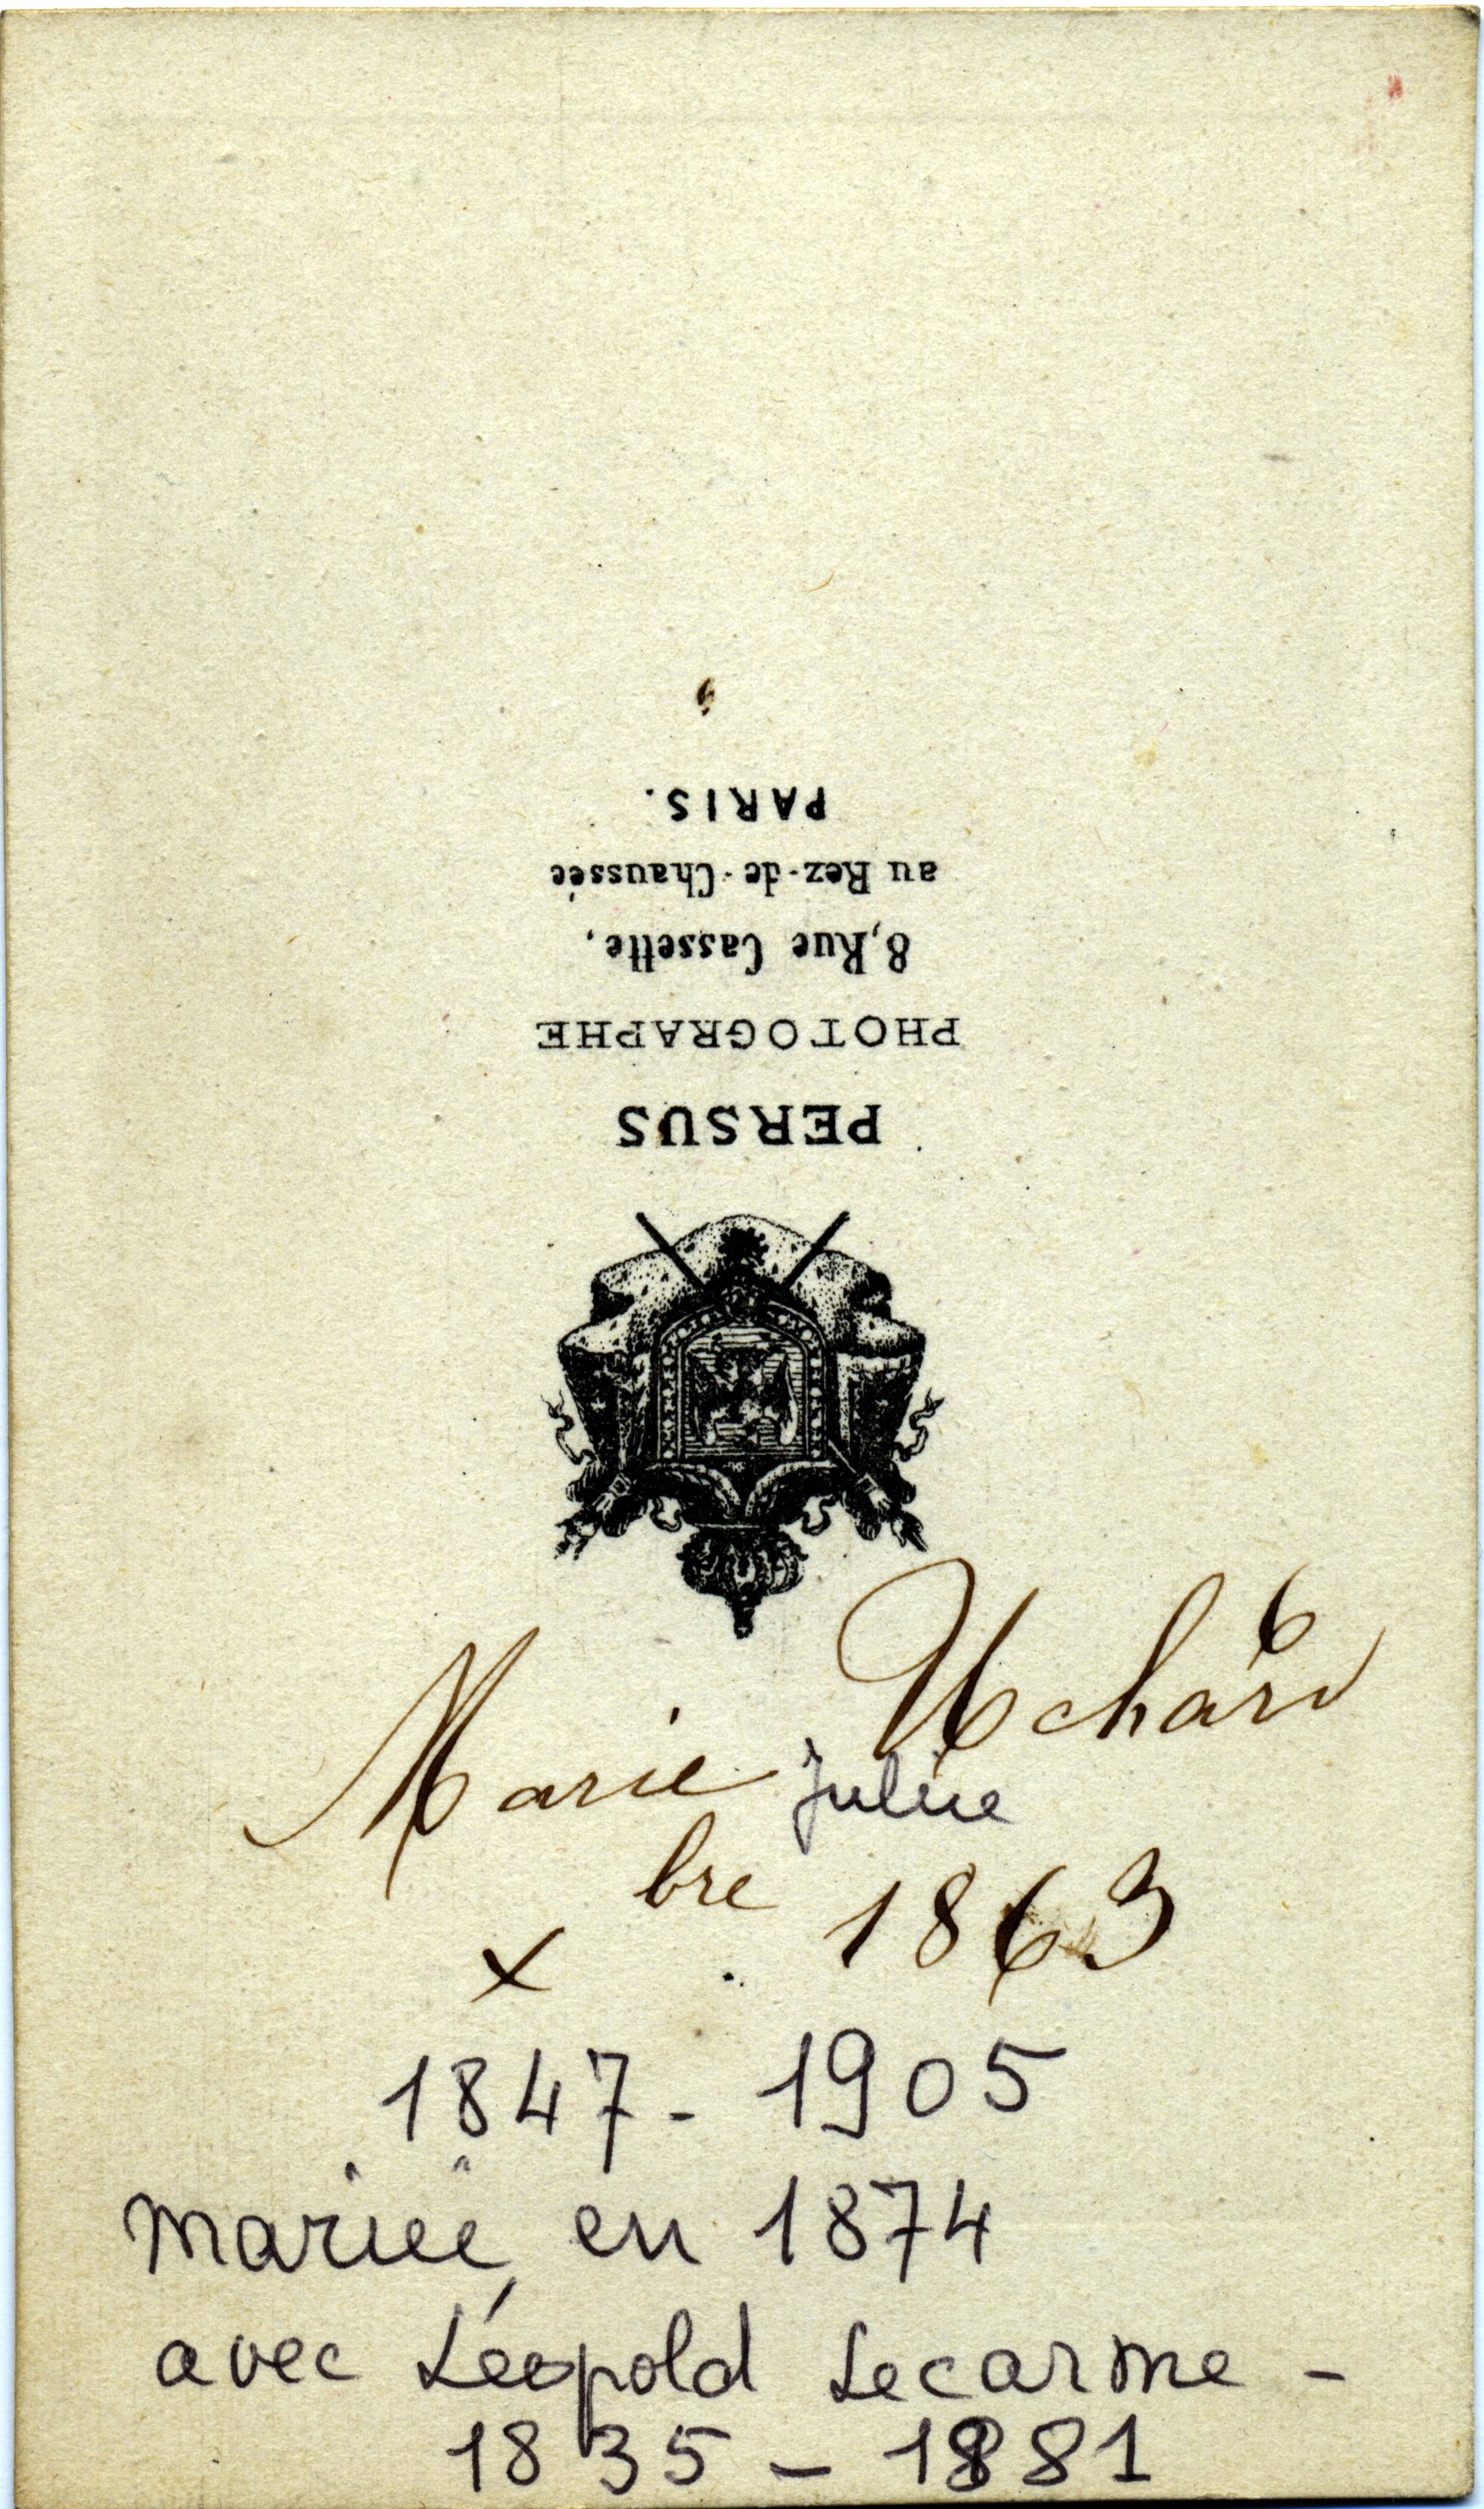 PERSUS
PHOTOGRAPHE
8, Rue Cassette,
au Rez-de-Chaussée
PARIS.
Marie Uchard
Julie
Xbre 1863
1847 - 1905
mariée en 1874
avec Léopold Lecarme -
1835 - 1881